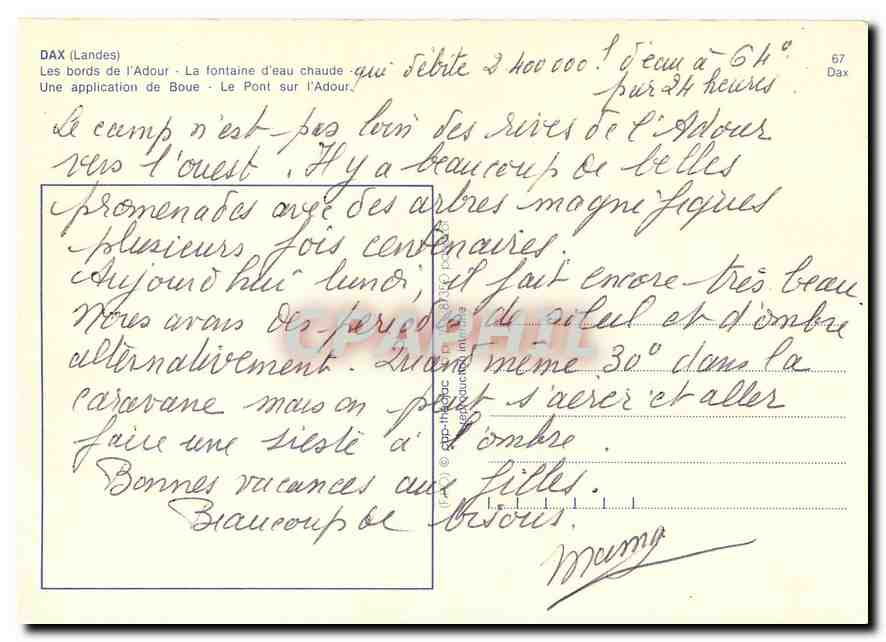 DAX (Landes)
Les bords de l'Adour - La fontaine d'eau chaude - qui débite 2 400 000 l d'eau à 64°
Une application de Boue - Le Pont sur l'Adour. par 24 heures.
67
Dax
Le camp n'est pas loin des rives de l'Adour
vers l'ouest. Il y a beaucoup de belles
promenades avec des arbres magnifiques
plusieurs fois centenaires.
Aujourd'hui lundi, il fait encore très beau
Nous avons des periodes de soleil et d'ombre
alternativement. Quand même 30° dans la
caravane mais on peut s'aérer et aller
faire une sieste à l'ombre.
Bonnes vacances aux filles.
Beaucoup de bisous.
Mamy
CPAPHIL
reproduction interdite